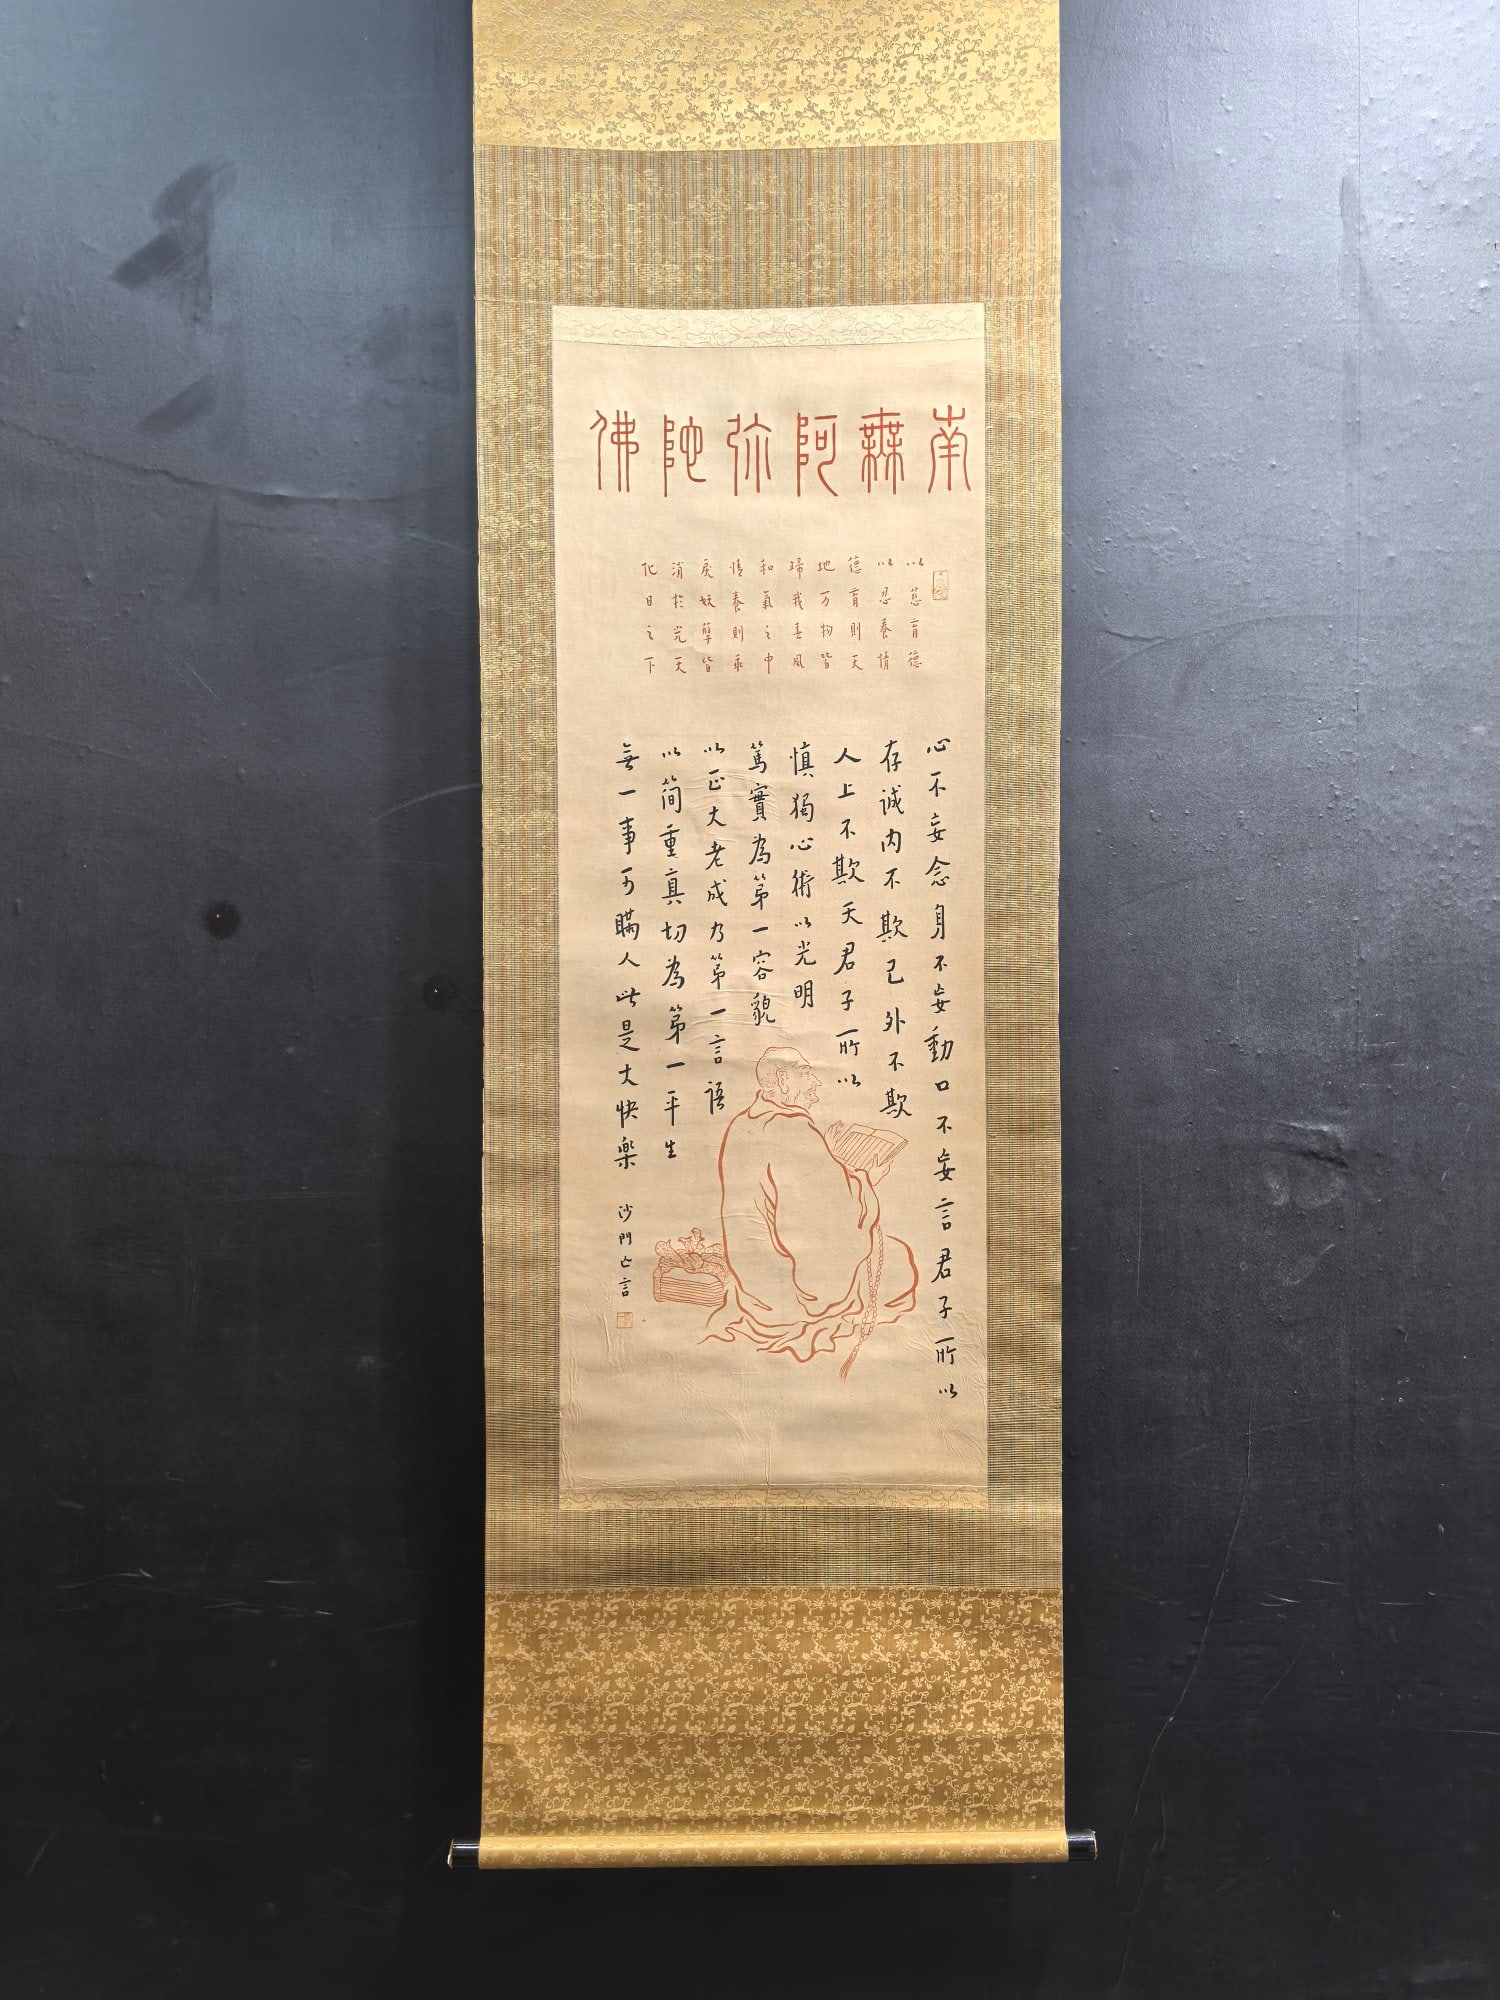 南無阿弥陀佛
以慈育德
以忍養情
德育則天
地万物皆
歸我春風
和氣之中
情養則乖
戾妖孽皆
消於光天
化日之下
心不妄念身不妄動口不妄言君子所以
存诚内不欺己外不欺
人上不欺天君子所以
慎獨心術以光明
篤實為第一容貌
以正大老成为第一言語
以简重真切為第一平生
無一事可瞞人此是大快樂
沙門亡言